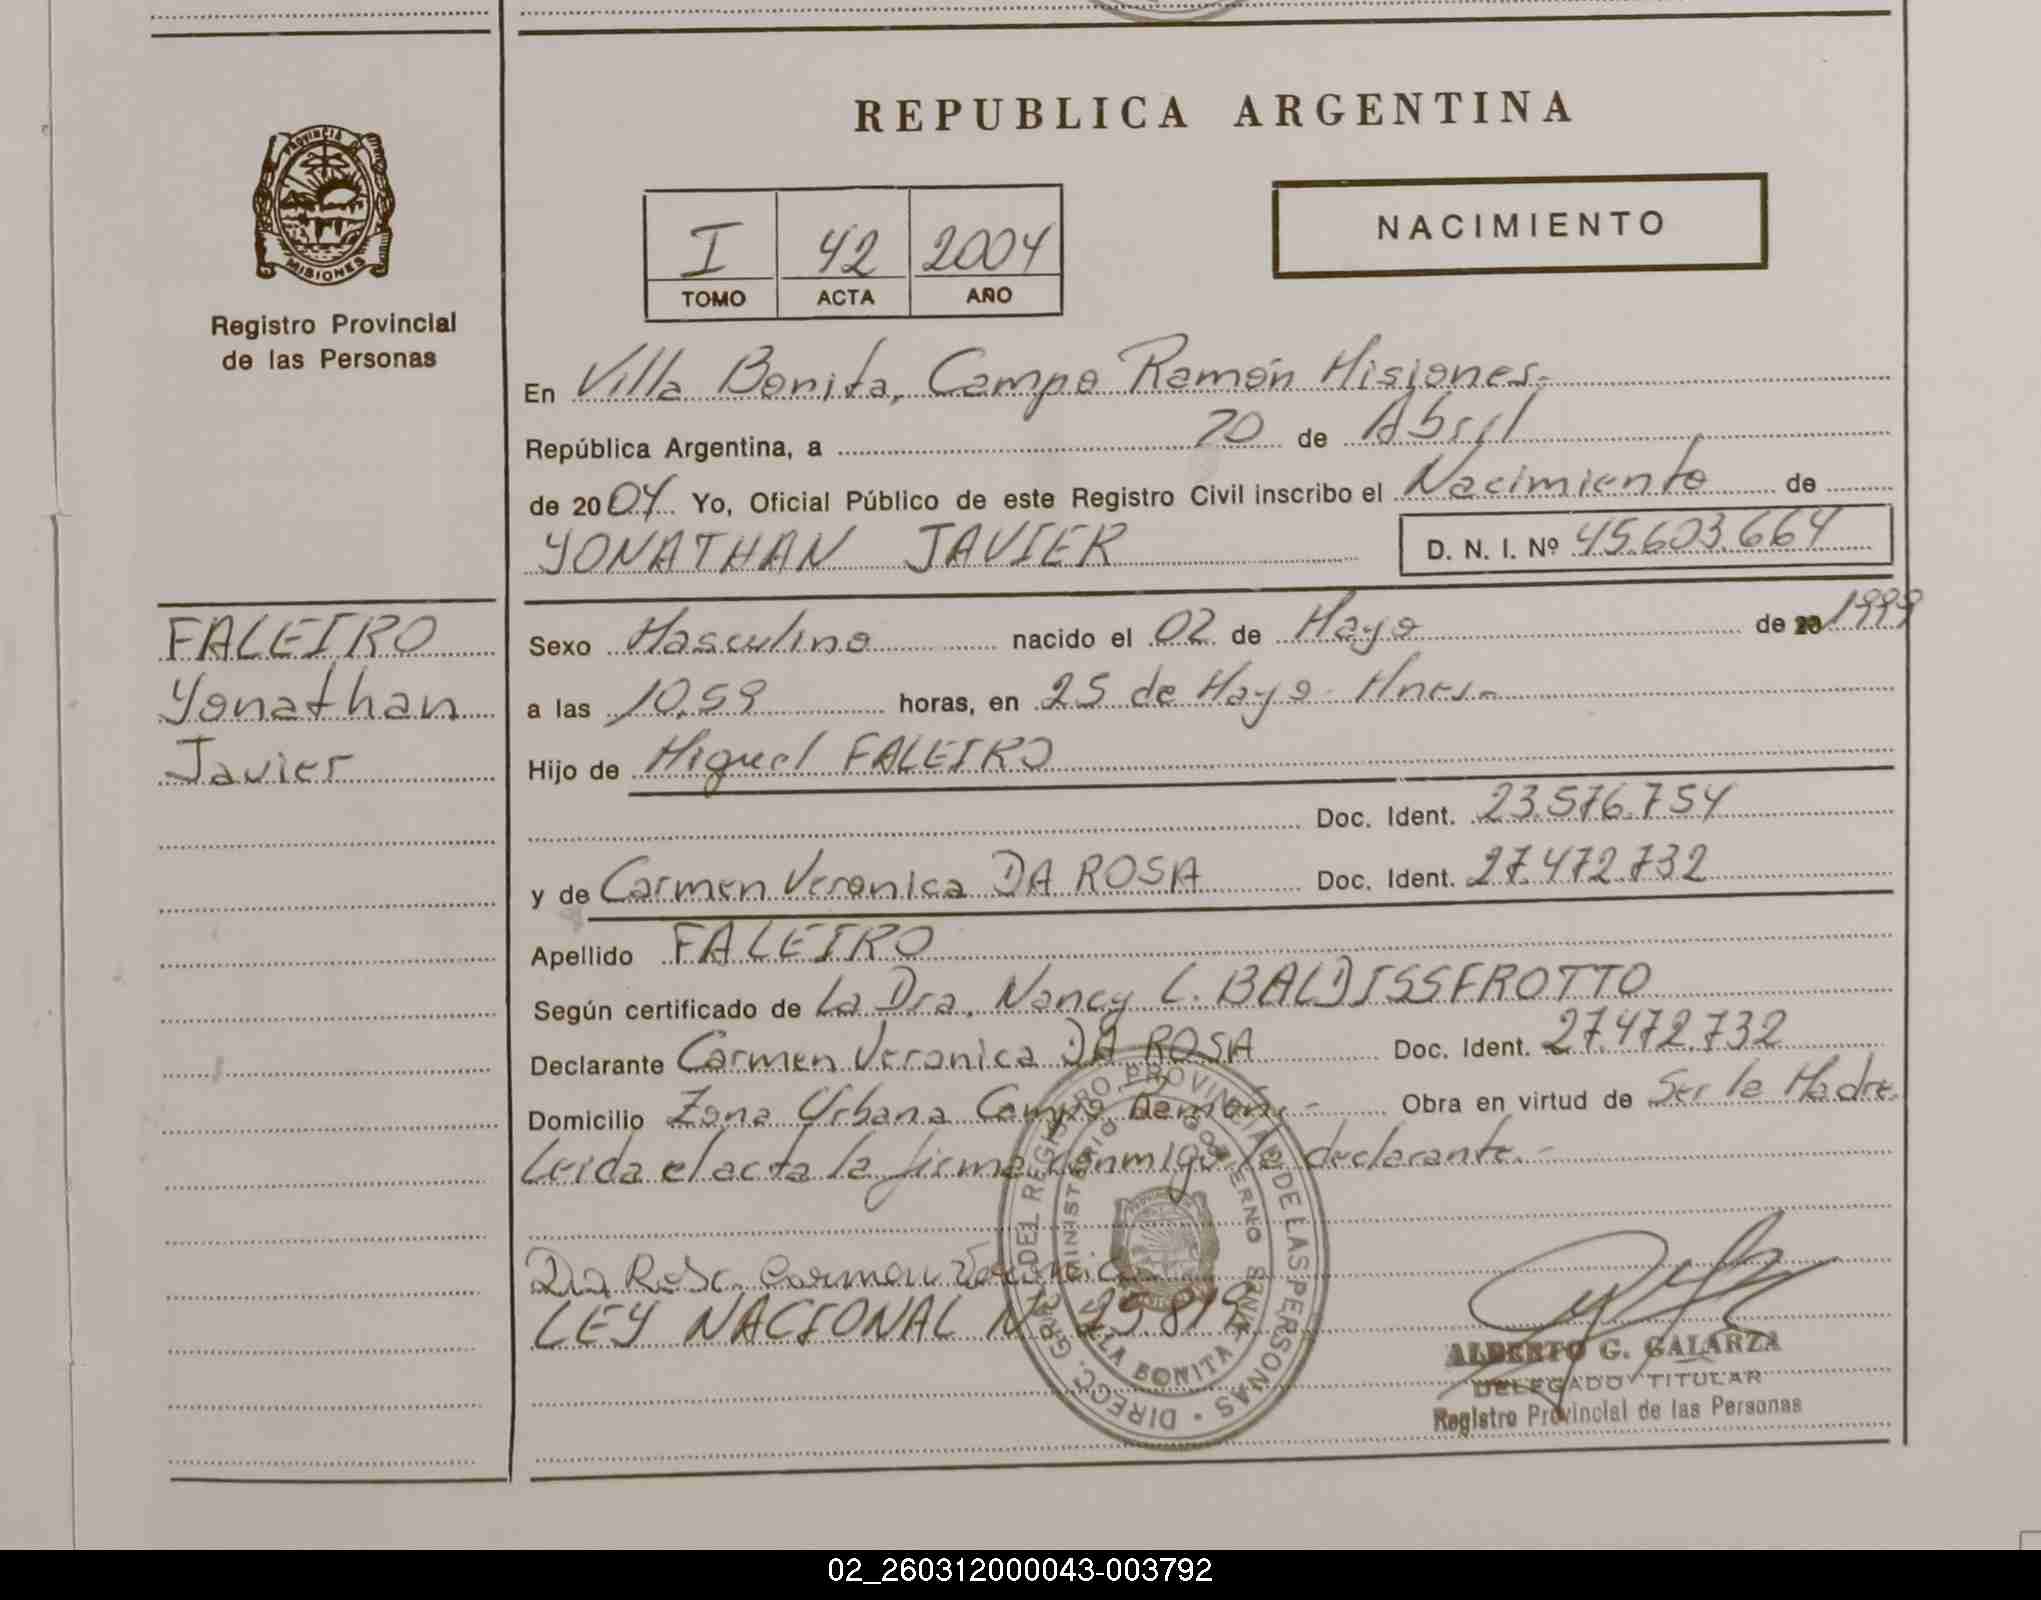 REPUBLICA ARGENTINA
PROVINCIA DE MISIONES
Registro Provincial
de las Personas
I 42 2004
TOMO ACTA AÑO
NACIMIENTO
En Villa Bonita, Campo Ramón Misiones.-
República Argentina, a 20 de Abril
de 2004 Yo, Oficial Público de este Registro Civil inscribo el Nacimiento de
YONATHAN JAVIER D. N. I. Nº 45.603.664
FALEIRO
Yonathan
Javier
Sexo Masculino nacido el 02 de Mayo de 1999
a las 10,59 horas, en 25 de Mayo - Mnes.-
Hijo de Miguel FALEIRO
Doc. Ident. 23.576.754
y de Carmen Veronica DA ROSA Doc. Ident. 27.472.732
Apellido FALEIRO
Según certificado de La Dra. Nancy L. BALDISSEROTTO
Declarante Carmen Veronica DA ROSA Doc. Ident. 27.472.732
Domicilio Zona Urbana Campo Ramón.- Obra en virtud de Ser la Madre.
Leida el acta la firma conmigo la declarante.-
Da Rosa Carmen Veronica
LEY NACIONAL Nº 25.819
DIRECC. GRAL. DEL REGISTRO PROVINCIAL DE LAS PERSONAS
MINISTERIO DE GOBIERNO
VILLA BONITA
ALBERTO G. GALARZA
DELEGADO TITULAR
Registro Provincial de las Personas
02_260312000043-003792